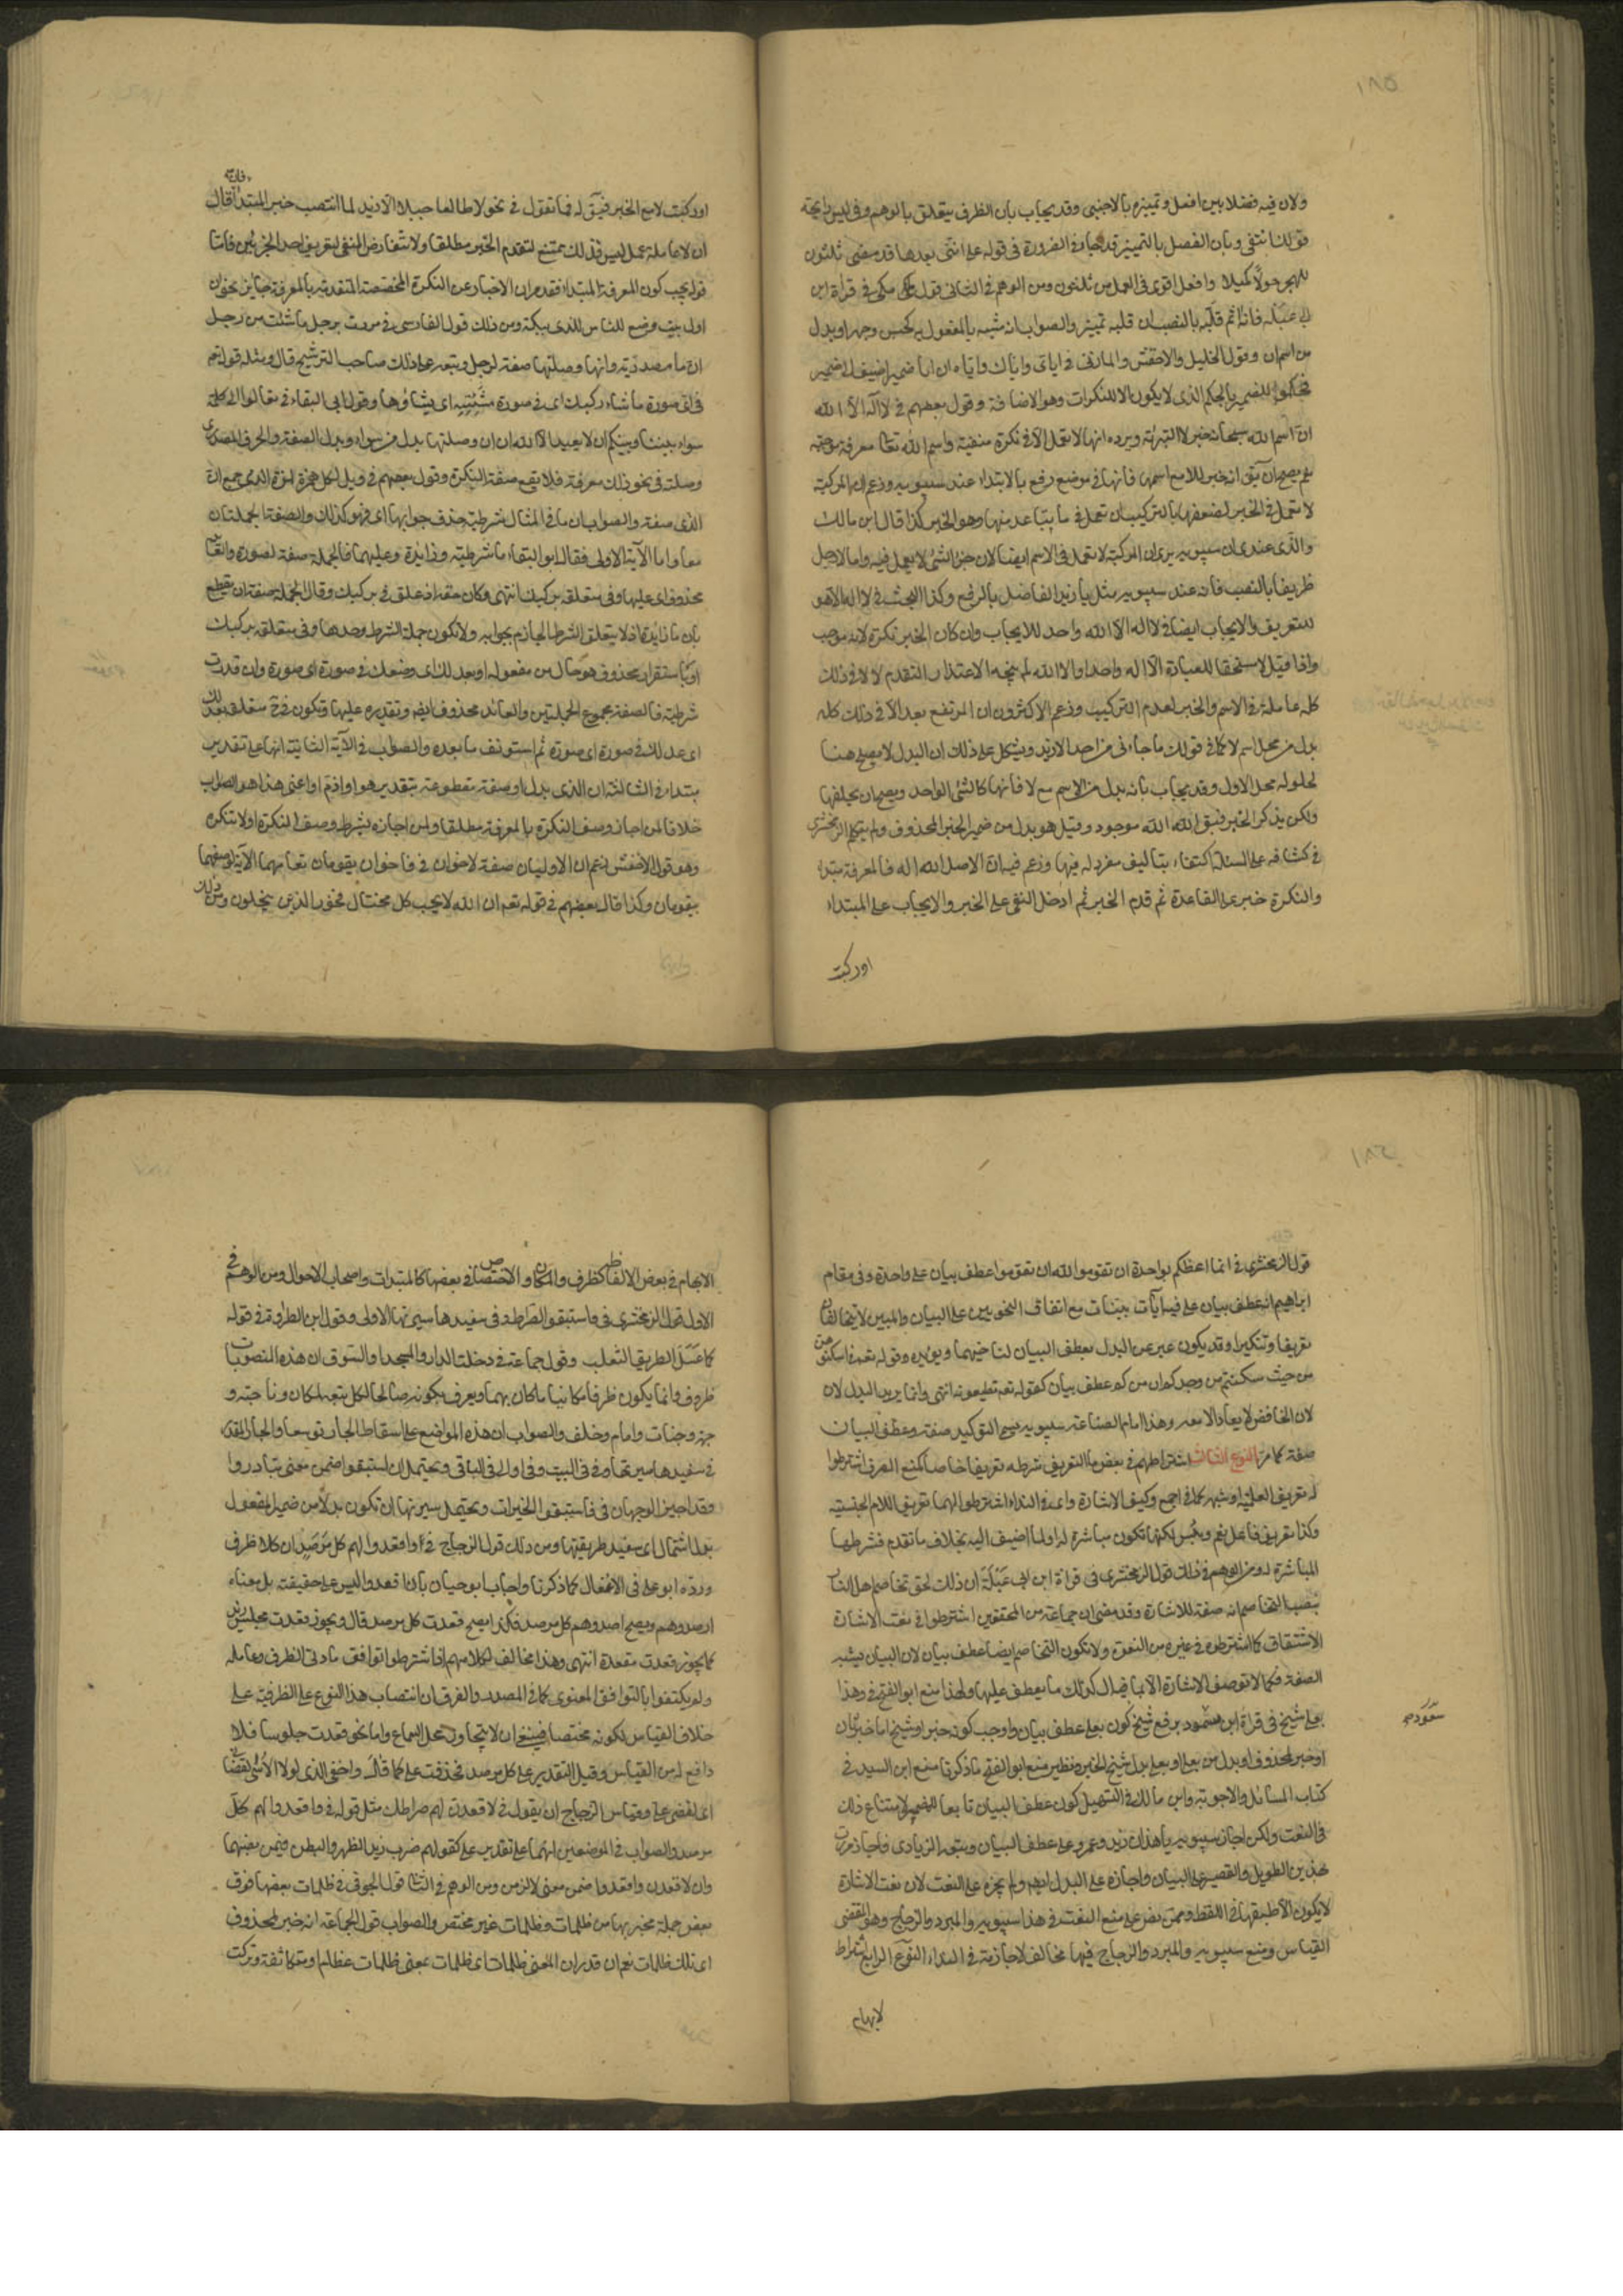 ١٨٥
ولان فيه فصلا بين افعل وتمييزه بالاجنبى وقد يجاب بان الظرف يتعلق بالوهم وفى ليس رايحة
قولك انتفى وبان الفصل بالتمييز قد جاء فى الضرورة فى قوله على اننى بعد ما قد مضى ثلثون
للهجر حولا كميلا وافعل اقوى فى العمل من ثلثون ومن الوهم فى الثانى قول مكى فى قراءة ابن
ابى عبلة فانه اثم قلبه بالنصب ان قلبه تمييز والصواب انه مشبه بالمفعول به كحسن وجهه او بدل
من اسم ان وقول الخليل والاخفش والمازنى فى اياى واياك واياه ان ايا ضمير اضيف الى ضمير
فحكموا للضمير بالحكم الذى لا يكون الا للنكرات وهو الاضافة وقول بعضهم فى لا اله الا الله
ان اسم الله سبحانه خبر لا التبرئة ويرده انها لا تعمل الا فى نكرة منفية واسم الله تعا معرفة موجبة
نعم يصح ان يق انه خبر للا مع اسمها فانها فى موضع رفع بالابتداء عند سيبويه وزعم ان المركبة
لا تعمل فى الخبر لضعفها بالتركيب ان تعمل فى ما تباعد منها وهو الخبر كذا قال ابن مالك
والذى عندى ان سيبويه يرى ان المركبة لا تعمل فى الاسم ايضا لان جزء الشئ لا يعمل فيه واما لا رجل
ظريفا بالنصب فانه عند سيبويه مثل يا زيد الفاضل بالرفع وكذا البحث فى لا اله الا هو
للتعريف والايجاب ايضا فى لا اله الا الله واحد للايجاب وان كان الخبر نكرة لانه موجب
واذا قيل لا مستحقا للعبادة الا اله واحد او الا الله لم يتجه الاعتذار المتقدم لا لا فى ذلك
كله عاملة فى الاسم والخبر لعدم التركيب وزعم الاكثرون ان المرتفع بعد الا فى ذلك كله
بدل من محل اسم لا كما فى قولك ما جاءنى من احد الا زيد ويشكل على ذلك ان البدل لا يصلح هنا
لحلوله محل الاول وقد يجاب بانه بدل من الاسم مع لا فانها كالشئ الواحد ويصح ان يخلفها
ولكن يذكر الخبر فيق الله موجود وقيل هو بدل من ضمير الخبر المحذوف ولم يتكلم الزمخشرى
فى كشافه على المسئلة اكتفاء بتاليف مفرد له فيها وزعم فيه ان الاصل الله اله فالمعرفة مبتدا
والنكرة خبر على القاعدة ثم قدم الخبر ثم ادخل النفى على الخبر والايجاب على المبتداء
اوركبت
اوركبت لا مع الخبر فيق له فما تقول فى نحو لا طالعا جبلا الا زيد لم انتصب خبر المبتدا فان قال
ان لا عاملة عمل ليس فذلك ممتنع لتقدم الخبر مطلقا ولانتفاض النفى لتعريف احد الجزئين فاما
قوله يجب كون المعرفة المبتداء فقد مر ان الاخبار عن النكرة المخصصة المتقدمة بالمعرفة جائز نحو ان
اول بيت وضع للناس للذى ببكة ومن ذلك قول الفارسى فى مررت برجل ما شئت من رجل
ان ما مصدرية وانها وصلتها صفة لرجل وتبعه على ذلك صاحب الترشيح قال ومثله قوله تعم
فى اى صورة ما شاء ركبك اى فى صورة مشيئته اى يشاؤها وقول ابى البقاء فى تعالوا الى كلمة
سواء بيننا وبينكم ان لا نعبد الا الله ان ان وصلتها بدل من سواء وبدل الصفة والحرف المصدرى
وصلته فى نحو ذلك معرفة فلا يقع صفة للنكرة وقول بعضهم فى ويل لكل همزة لمزة الذى جمع ان
الذى صفة والصواب ان ما فى المثال شرطية حذف جوابها اى فهو كذلك والصفة الجملتان
معا واما الآية الاولى فقال ابو البقاء ما شرطية وزائدة وعليهما فالجملة صفة لصورة والعائد
محذوف اى عليها وفى متعلقة بركبك انتهى وكان حقه اذ علق فى بركبك وقال الجملة صفة ان يقطع
بان ما زائدة اذ لا يتعلق الشرط الجازم بجوابه ولا تكون جملة الشرط وحدها وفى متعلقة بركبك
او باستقرار محذوف هو حال من مفعوله او بعدلك اى وضعك فى صورة اى صورة وان قدرت
شرطية فالصفة مجموع الجملتين والعائد محذوف ايضا وتقديره عليها وتكون فى ح متعلقة بعدلك
اى عدلك فى صورة اى صورة ثم استونف ما بعده والصواب فى الآية الثانية انها على تقدير
مبتداء فى الثالثة ان الذى بدل او صفة مقطوعة بتقدير هو او اذم او اعنى هذا هو الصواب
خلافا لمن اجاز وصف النكرة بالمعرفة مطلقا ولمن اجازه بشرط وصف النكرة اولا بنكرة
وهو قول الاخفش زعم ان الاوليان صفة لاخران فى فاخران يقومان مقامهما الآية لوصفهما
بيقومان وكذا قال بعضهم فى قوله تعم ان الله لا يحب كل مختال فخور الذين يبخلون ومن ذلك
١٨٦
قول الزمخشرى فى انما اعظكم بواحدة ان تقوموا لله ان تقوموا عطف بيان على واحدة وفى مقام
ابراهيم انه عطف بيان على فيه آيات بينات مع اتفاق النحويين على البيان والمبين لا يتخالفان
تعريفا وتنكيرا وقد يكون عبر عن البدل بعطف البيان لتاخيهما ويؤيده وقوله تعم فى اسكنوهن
من حيث سكنتم من وجدكم ان من كم عطف بيان كقوله تعم تطيعونه انتهى وانما يريد البدل لان
لان الخافض لا يعاد الا معه وهذا امام الصناعة سيبويه يسمى التوكيد صفة وعطف البيان
صفة كما مر النوع الثالث اشتراطهم فى بعض ما التعريف شرطه تعريفا خاصا كمنع الصرف اشترطوا
له تعريف العلمية او شبهه كما فى اجمع وكنعت الاشارة واى فى النداء اشترطوا لهما تعريف اللام الجنسية
وكذا تعريف فاعل نعم وبئس لكنها تكون مباشرة له او لما اضيف اليه بخلاف ما تقدم فشرطها
المباشرة له ومن الوهم فى ذلك قول الزمخشرى فى قراءة ابن ابى عبلة ان ذلك لحق تخاصم اهل النار
بنصب التخاصم انه صفة للاشارة وقد مضى ان جماعة من المحققين اشترطوا فى نعت الاشارة
الاشتقاق كما اشترطوه فى غيره من النعوت ولا تكون التخاصم ايضا عطف بيان لان البيان يشبه
الصفة فكما لا توصف الاشارة الا بما فيه ال كذلك ما يعطف عليها ولهذا منع ابو الفتح فى وهذا
بعلى شيخ فى قراءة ابن مسعود برفع شيخ كون بعلى عطف بيان واوجب كونه خبرا وشيخ اما خبر ثان
او خبر لمحذوف او بدل من بعلى او بعلى بدل وشيخ الخبر ونظير منع ابو الفتح ما ذكرنا منع ابن السيد فى
كتاب المسائل والاجوبة وابن مالك فى التسهيل كون عطف البيان تابعا للضمير لامتناع ذلك
فى النعت ولكن اجاز سيبويه يا هذان زيد وعمرو على عطف البيان وتبعه الزيادى فاجاز مررت
بهذين الطويل والقصير على البيان واجازه على البدل ايضا ولم يجزه على النعت لان نعت الاشارة
لا يكون الا طبقها فى اللفظ وممن نص على منع النعت فى هذا سيبويه والمبرد والزجاج وهو مقتضى
القياس ومنع سيبويه والمبرد والزجاج فيها مخالف لاجازته فى النداء النوع الرابع اشتراط
لابهام
الابهام فى بعض الالفاظ كظرف المكان والاختصاص فى بعضها كالمبتدات واصحاب الاحوال ومن الوهم فى
الاول قول الزمخشرى فى فاستبقوا الصراط وفى سنعيدها سيرتها الاولى وقول ابن الطراوة فى قوله
كما عسل الطريق الثعلب وقول جماعة فى دخلت الدار والمسجد او السوق ان هذه المنصوبات
ظروف وانما يكون ظرفا مكانيا ما كان مبهما ويعرف بكونه صالحا لكل بقعة كمكان وناحية و
جهة وجانب وامام وخلف والصواب ان هذه المواضع على اسقاط الجار توسعا والجار المقدر
فى سنعيدها سيرتها وفى فى البيت وفى او الى فى الباقى ويحتمل ان استبقوا ضمن معنى تبادروا
وقد اجيز الوجهان فى فاستبقوا الخيرات ويحتمل سيرتها ان تكون بدلا من ضمير المفعول
بدل اشتمال اى سنعيد طريقتها ومن ذلك قول الزجاج فى واقعدوا لهم كل مرصد ان كلا ظرف
ورده ابو على فى الاغفال كما ذكرنا واجاب ابو حيان بان اقعدوا ليس على حقيقته بل معناه
ارصدوهم ويصح ارصدوهم كل مرصد فكذا يصح قعدت كل مرصد قال ويجوز قعدت مجلس زيد
كما يجوز قعدت مقعده انتهى وهذا مخالف لكلامهم اذ اشترطوا توافق مادتى الظرف وعامله
ولم يكتفوا بالتوافق المعنوى كما فى المصدر والفرق ان انتصاب هذا النوع على الظرفية على
خلاف القياس لكونه مختصا فينبغى ان لا يتجاوز محل السماع واما نحو قعدت جلوسا فلا
دافع له من القياس وقيل التقدير على كل مرصد فحذفت على كما قال واخفى الذى لولا الاسى لقضانى
اى لقضى على وقياس الزجاج ان يقول فى لاقعدن لهم صراطك مثل قوله فى واقعدوا لهم كل
مرصد والصواب فى الموضعين انهما على تقدير على كقولهم ضرب زيد الظهر والبطن فيمن نصبهما
وان لاقعدن واقعدوا ضمن معنى لالزمن ومن الوهم فى الثانى قول الحوفى فى ظلمات بعضها فوق
بعض جملة مخبر بها من ظلمات وظلمات غير مختص والصواب قول الجماعة انه خبر لمحذوف
اى تلك ظلمات نعم ان قدر ان المعنى ظلمات اى ظلمات بمعنى ظلمات عظام او متكاثفة وتركت